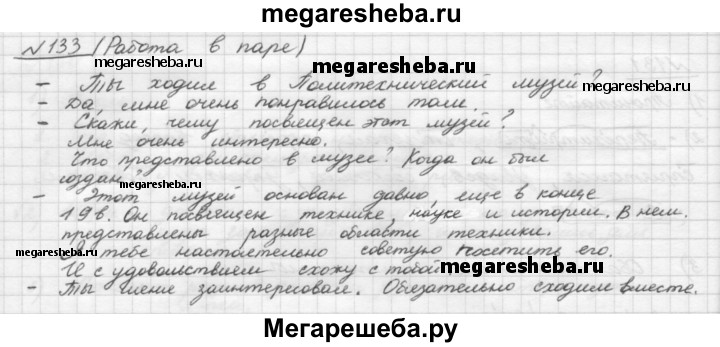 megaresheba.ru
№133 (Работа в паре)
megaresheba.ru
megaresheba.ru
- Ты ходил в Политехнический музей?
- Да, мне очень понравилось там.
- Скажи, чему посвещен этот музей?
Мне очень интересно.
megaresheba.ru
Что представлено в музее? Когда он был
создан?
megaresheba.ru
- Этот музей основан давно, еще в конце
19в. Он посвещен технике, науке и истории. В нем.
представлены разные области техники.
megaresheba.ru
тебе настоятельно советую посетить его.
И с удовольствием схожу с тобой
megaresheba.ru
- Ты меня заинтересовал. Обязательно сходим вместе.
Мегарешеба.ру